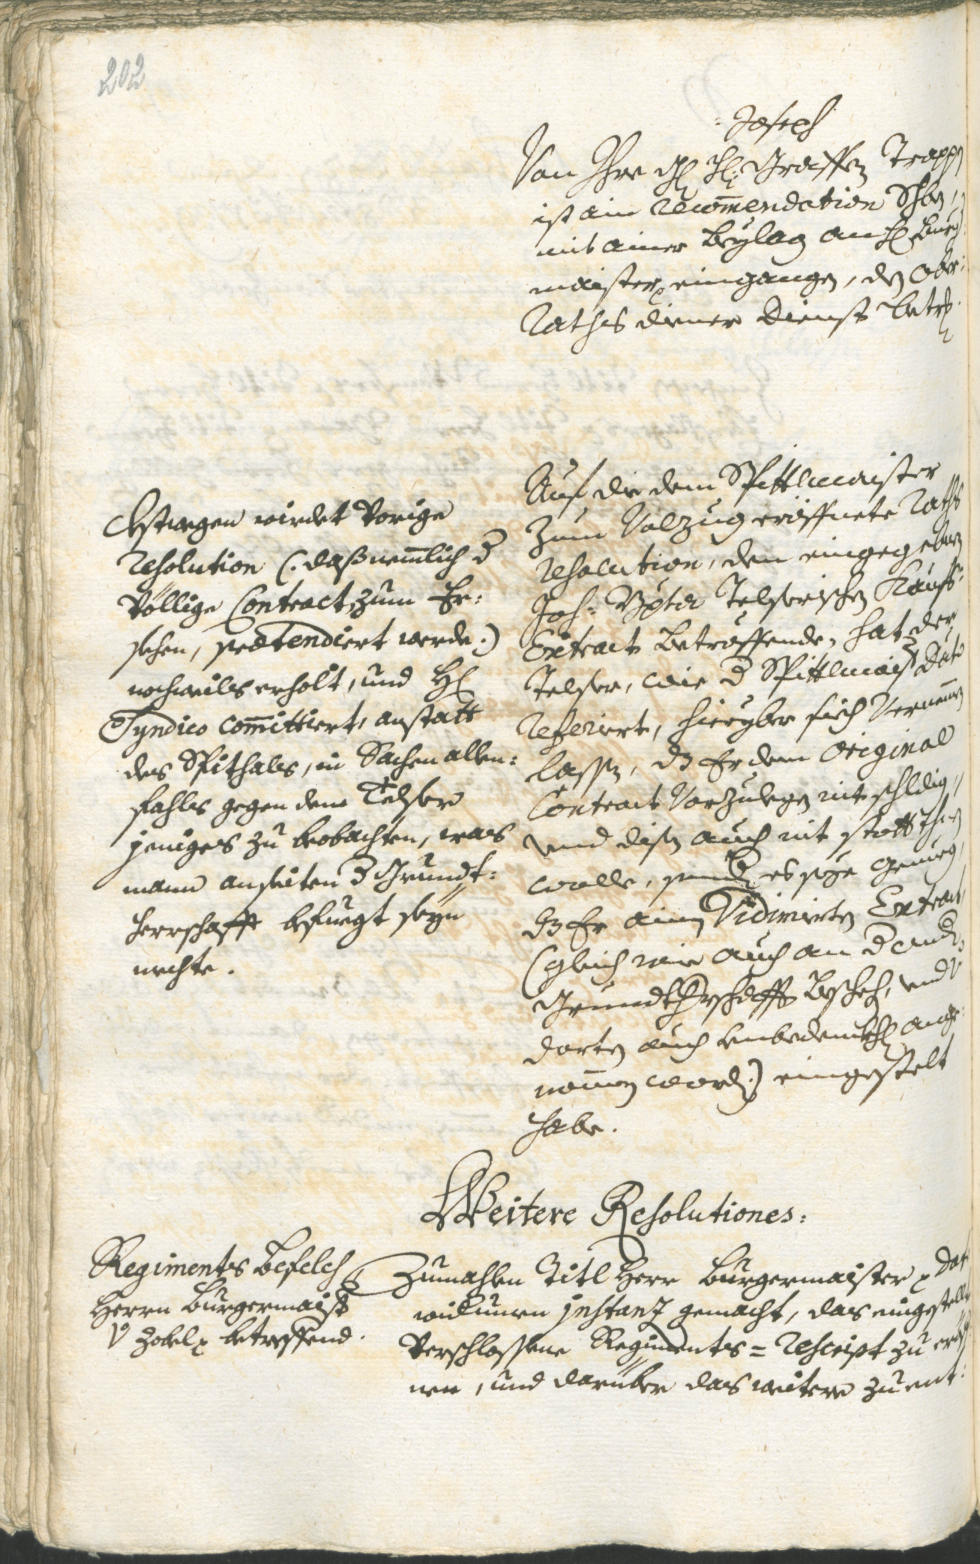 202
: Joseph
Von Ihro Graffen Trapp
ist ain recom̅endation Schbn,
mit ainer Beylag an H Burg:
maister eingangen, den Ober:
Raths diener Dienst betr:
Auf die dem Spittlmaister
zum Volzug eröffnete Raths
resolution, den eingegebnen
Joh: Telserischen Kauffs:
Extract betreffende, hat der
Telser, wie d Spittlmaister
referiert, hieryber sich vernem̅en
lassen, dz Er den Original
Contract vorzulegen nit schuldig,
vnd diss auch nit statt thuen
wolle, es seye genueg,
dz Er ainen Vidimirten Extract
(gleich wie auch an d andern
Grundtherschafft beschechen, vnd
dorten auch ohnbedencklich ange:
nom̅en worden) eingestelt
habe.
Estwegen wirdet vorige
resolution (: daß nem̅lich d
völlige Contract zum Er:
sehen, praetendiert werde :)
nochmals erholt, und H
Syndico com̅ittiert, anstatt
des Spithals, in Sachen allen:
fahls gegen dem Telser
jeniges zu beobachten, was
mann anseiten d Grundt:
herrschafft befuegt seyn
mechte.
Weitere Resolutiones:
Regiments Befelch
Herrn Burgermaister
v Zobel betreffend.
Zumahlen Titl Herr Burgermaister
widumen instanz gemacht, das eingestelte
verschlossene Regiments= rescript zu eröff
nen, und darüber das weitere zu ent: